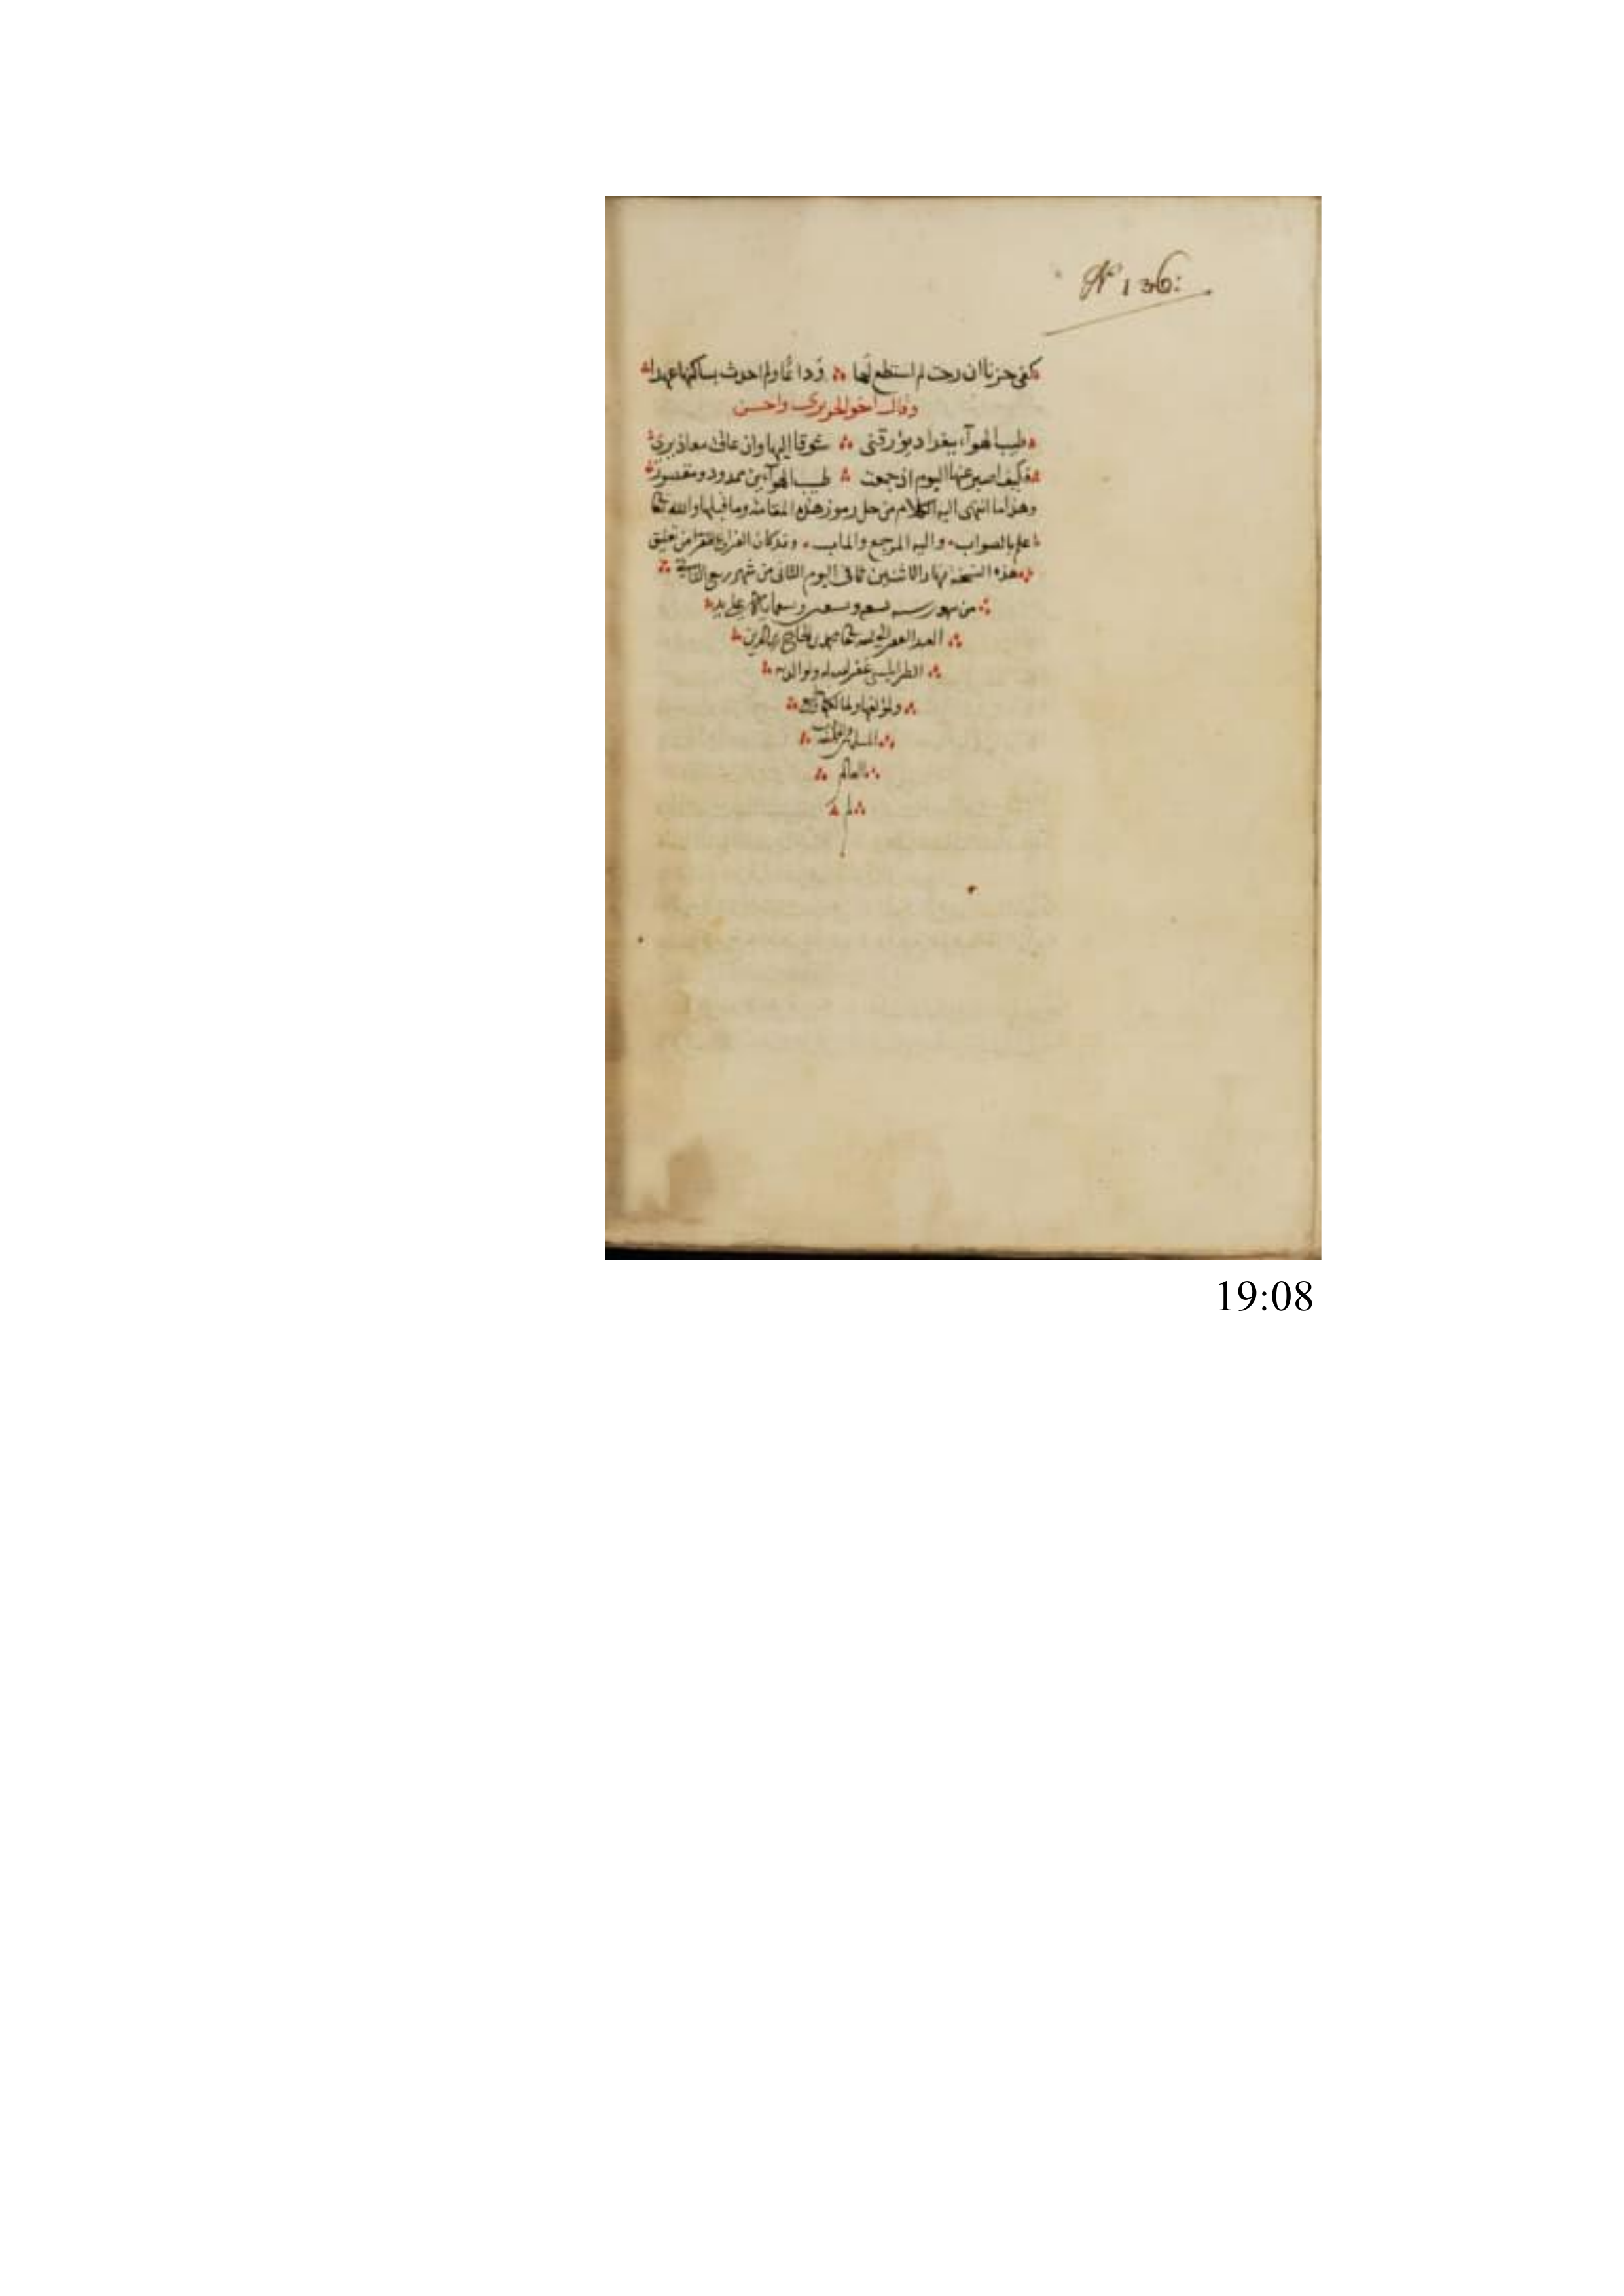 Nº 136:
كفى حزنا ان رحت لم استطع لها ؞ وداعًا ولم احدث بساكنها عهدا
وقال اخو الحريرى واحسن
طيب الهوآء ببغداد يؤرقنى ؞ شوقا إليها وان عاق معاذيرى
فكيف اصبر عنها اليوم اذ جمعت ؞ طيب الهوآءين ممدود ومقصور
وهذا ما انتهى اليه الكلام من حل رموز هذه المقامة وما قبلها والله
اعلم بالصواب، واليه المرجع والماب، وقد كان الفراغ من تعليق
هذه النسخة نهار الاثنين ثانى اليوم الثانى من شهر ربيع الثانى
من شهور سنه وتسعين وتسعمايه على يد
العبد الفقير الدين
الطرابلسى غفر الله له ولوالديه
ولمؤلفها ولمالكها
المسلمين
العالم
م
19:08